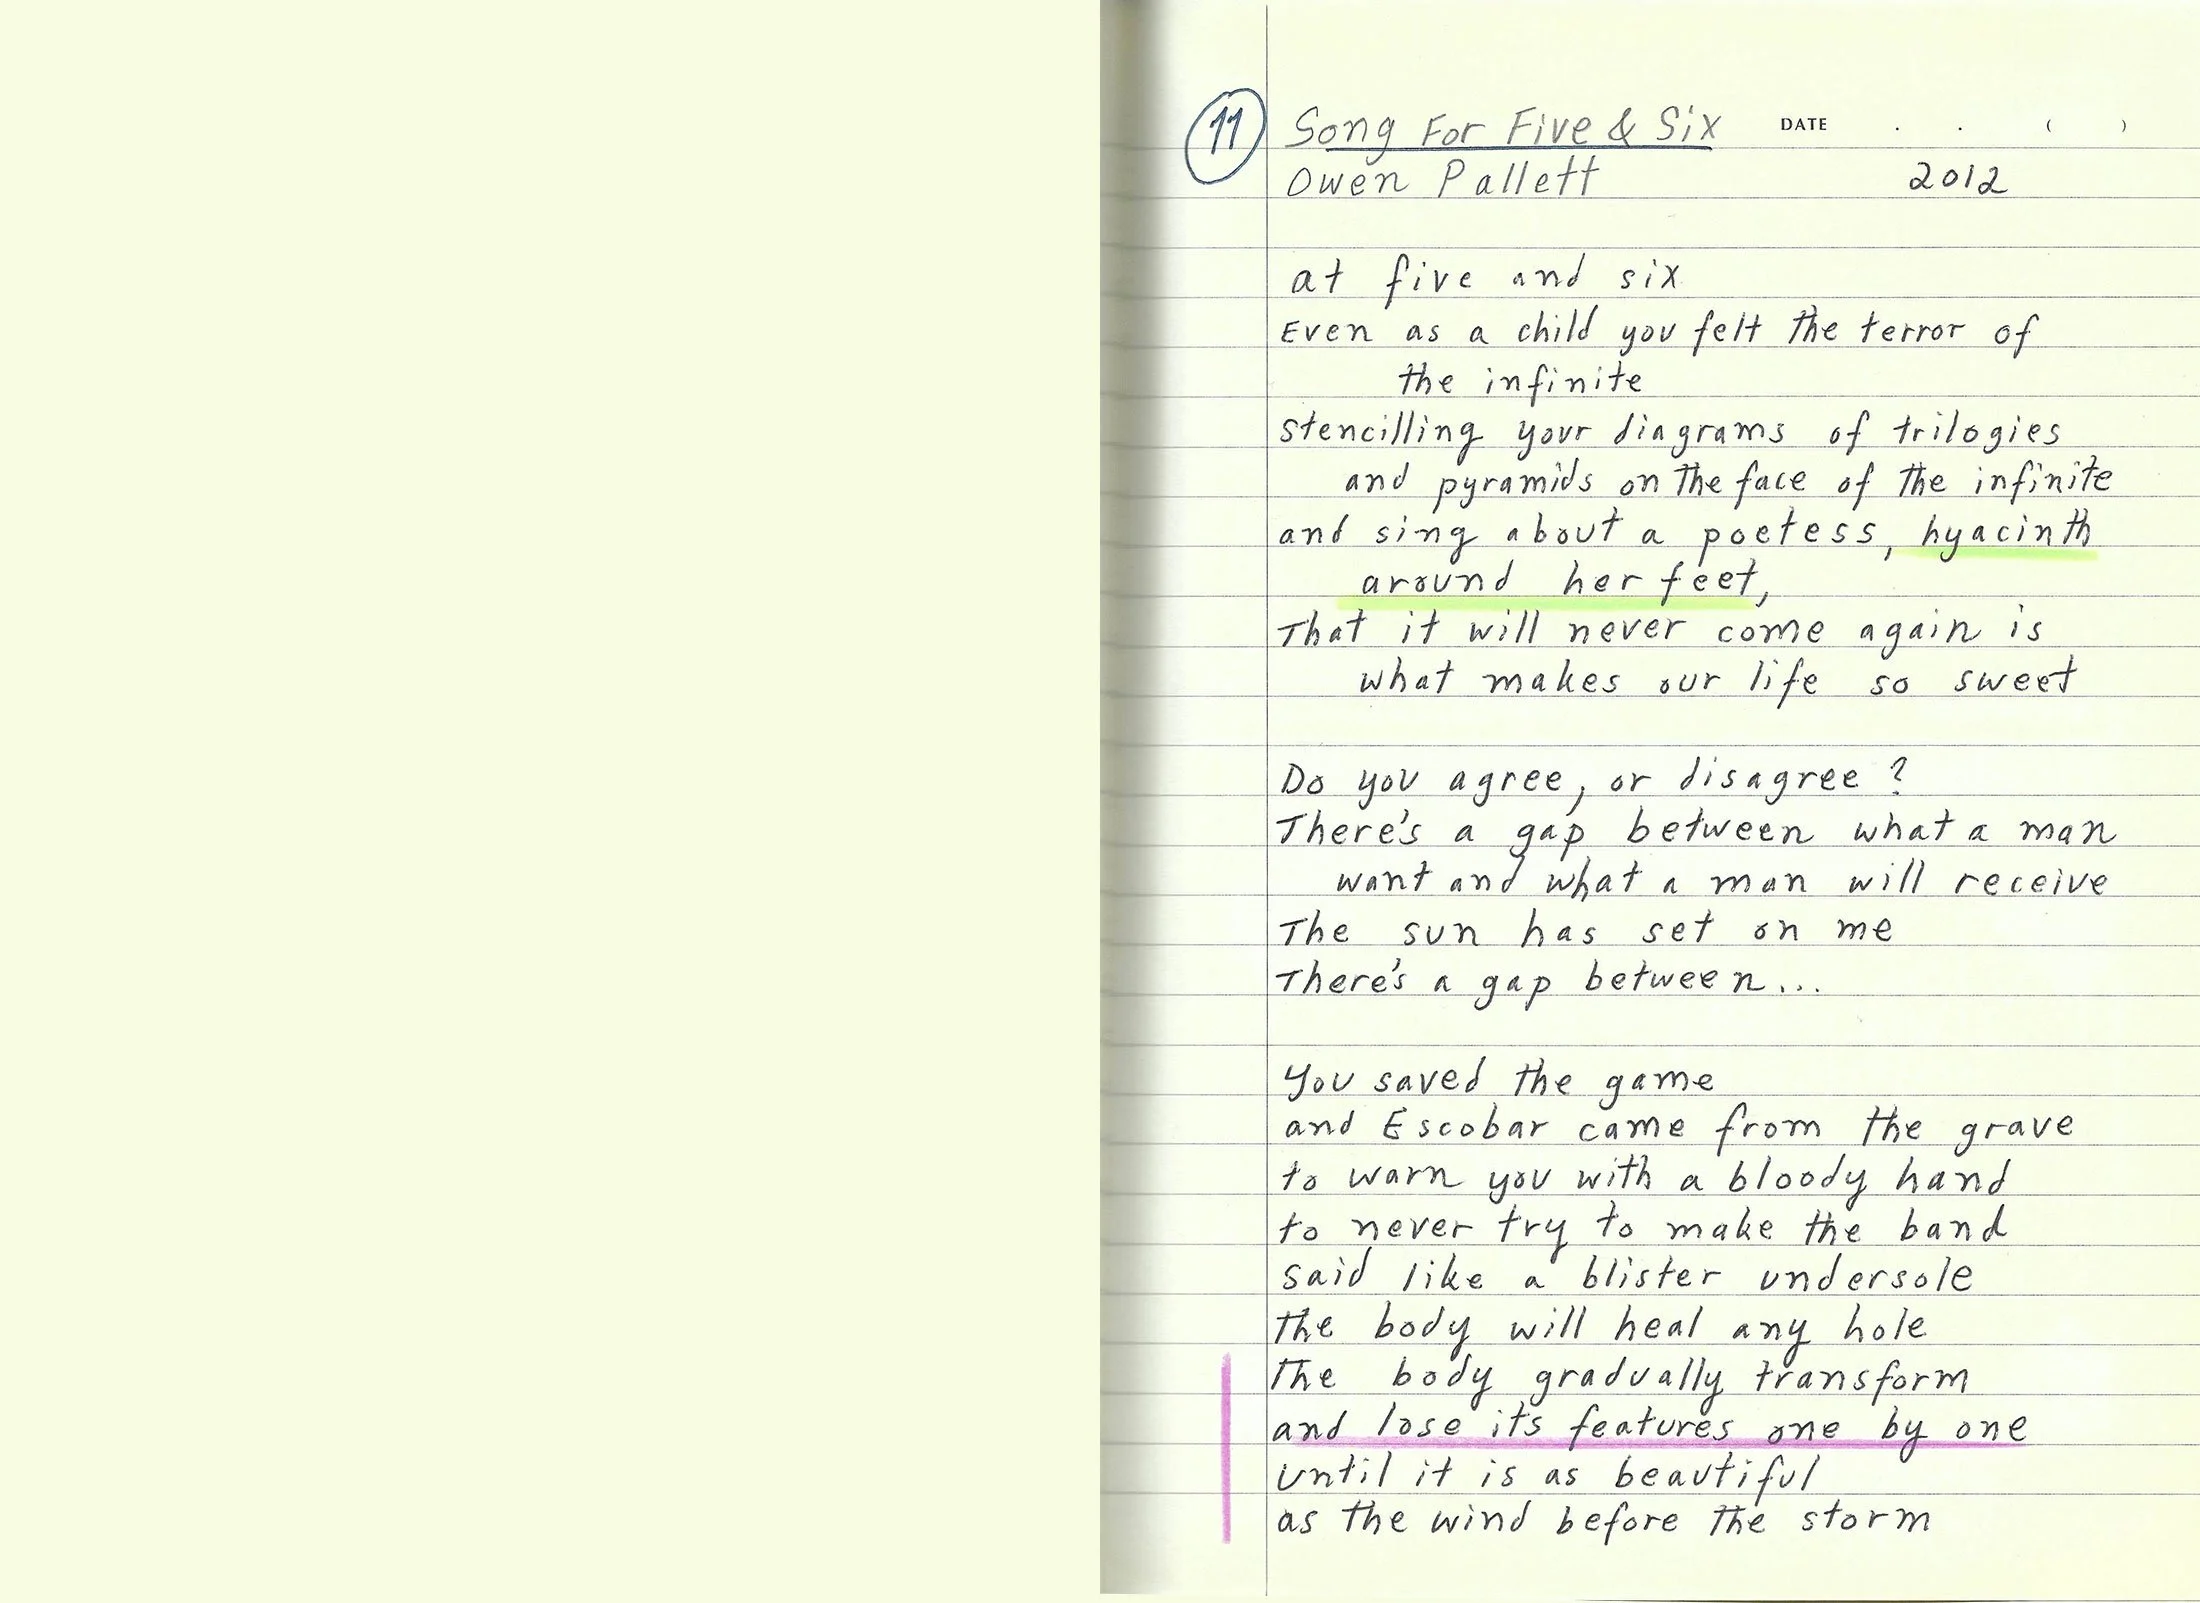 11
Song For Five & Six DATE . . ( )
Owen Pallett 2012
at five and six
Even as a child you felt the terror of
the infinite
stencilling your diagrams of trilogies
and pyramids on the face of the infinite
and sing about a poetess, hyacinth
around her feet,
That it will never come again is
what makes our life so sweet
Do you agree, or disagree?
There's a gap between what a man
want and what a man will receive
The sun has set on me
There's a gap between...
You saved the game
and Escobar came from the grave
to warn you with a bloody hand
to never try to make the band
said like a blister undersole
the body will heal any hole
The body gradually transform
and lose its features one by one
until it is as beautiful
as the wind before the storm